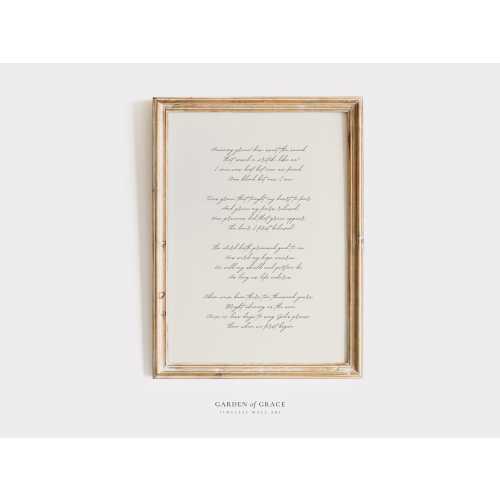 Amazing grace how sweet the sound
That saved a wretch like me
I once was lost but now am found
Was blind but now I see
'Twas grace that taught my heart to fear
And grace my fears relieved
How precious did that grace appear
The hour I first believed
The Lord hath promised good to me
His word my hope secures
He will my shield and portion be
As long as life endures
When we've been there ten thousand years
Bright shining as the sun
We've no less days to sing God's praise
Than when we first begun
GARDEN of GRACE
TIMELESS WALL ART